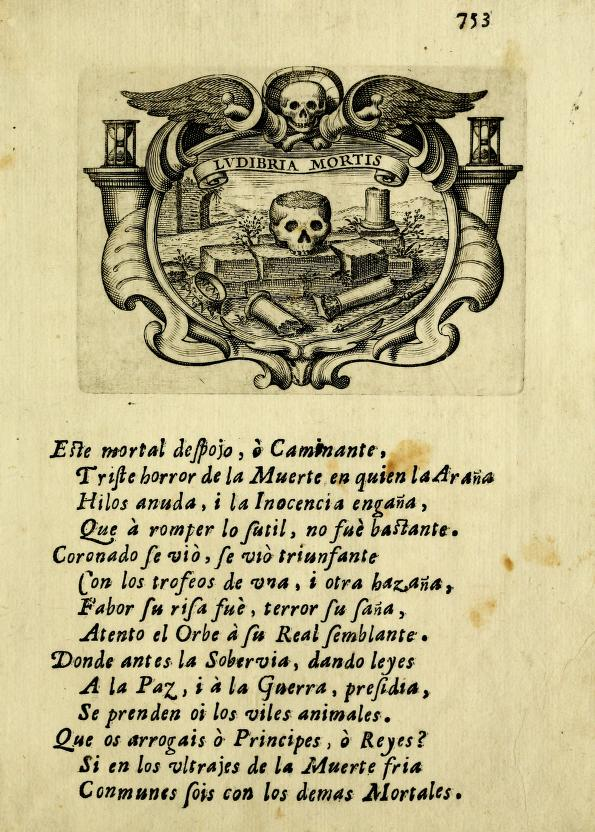 753
LVDIBRIA MORTIS
Este mortal deſpojo, ò Caminante,
Triſte horror de la Muerte en quien la Araña
Hilos anuda, i la Inocencia engaña,
Que à romper lo ſutil, no fuè bastante.
Coronado ſe viò, ſe viò triunfante
Con los trofeos de vna, i otra hazaña,
Fabor ſu riſa fuè, terror ſu ſaña,
Atento el Orbe à ſu Real ſemblante.
Donde antes la Sobervia, dando leyes
A la Paz, i à la Guerra, preſidia,
Se prenden oi los viles animales.
Que os arrogais ò Principes, ò Reyes?
Si en los vltrajes de la Muerte fria
Conmunes ſois con los demas Mortales.